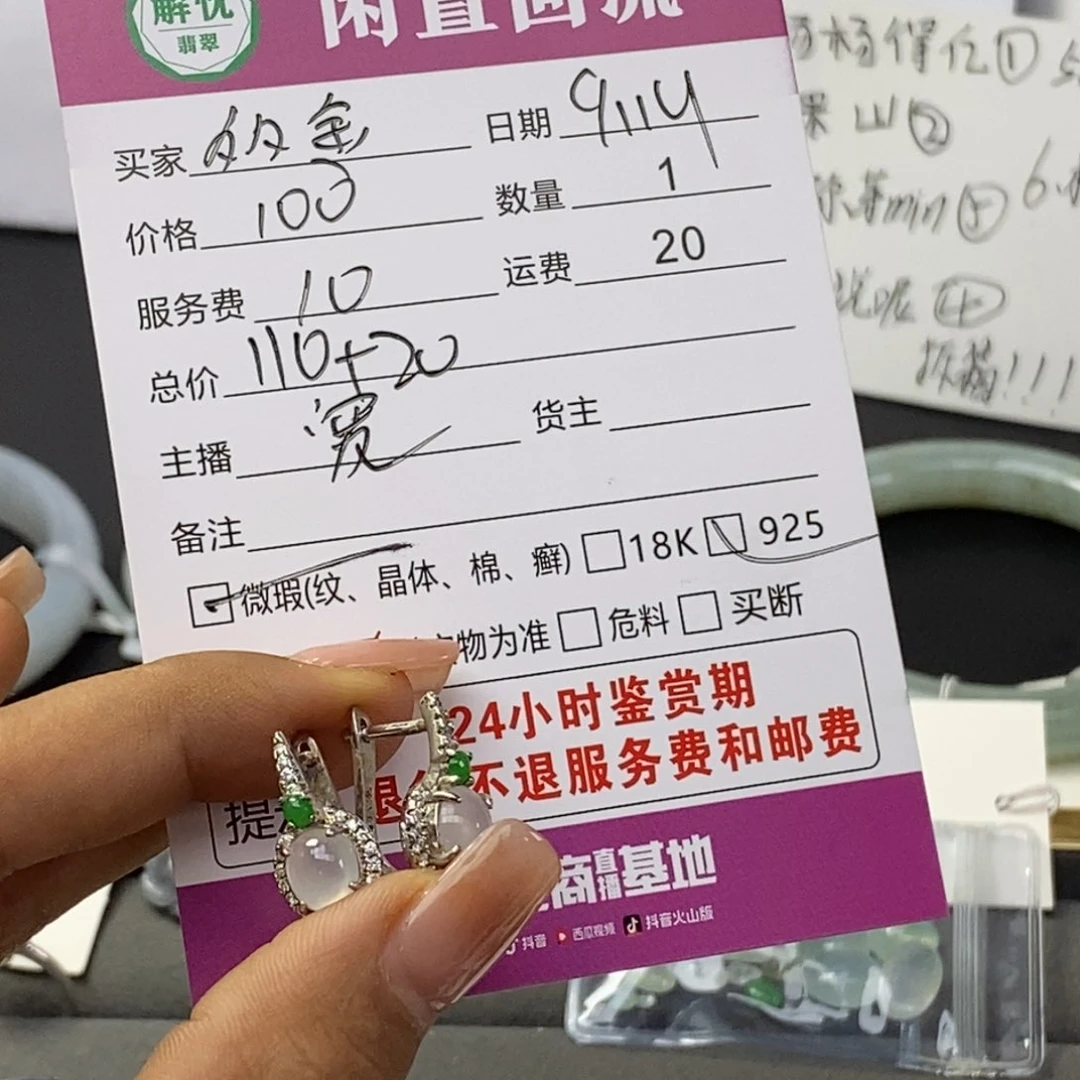 解忧
翡翠
闲置回流
买家 日期 9114
价格 100 数量 1
服务费 10 运费 20
总价 110+20
主播 宽 货主
备注
微瑕(纹、晶体、棉、癣) 18K 925
物为准 危料 买断
24小时鉴赏期
提 退 不退服务费和邮费
商直播基地
抖音 西瓜视频 抖音火山版
①
山②
等min⑤ 6.
说呢④
!!!